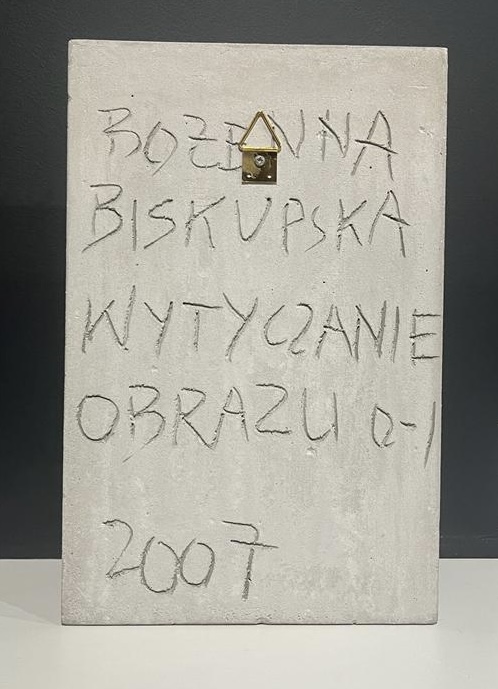 BOŻENNA
BISKUPSKA
WYTYCZANIE
OBRAZU 0-1
2007